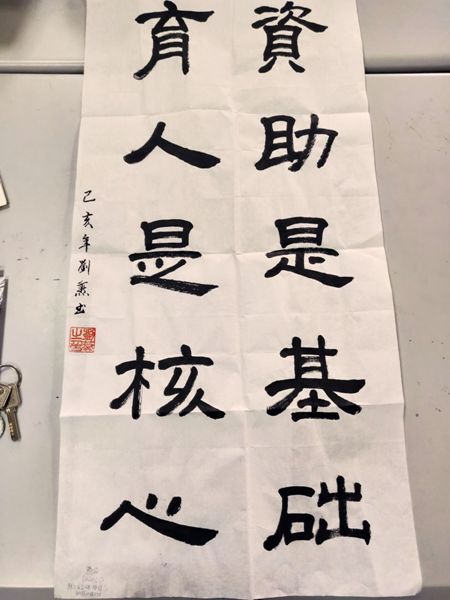 資助是基础
育人是核心
乙亥年劉